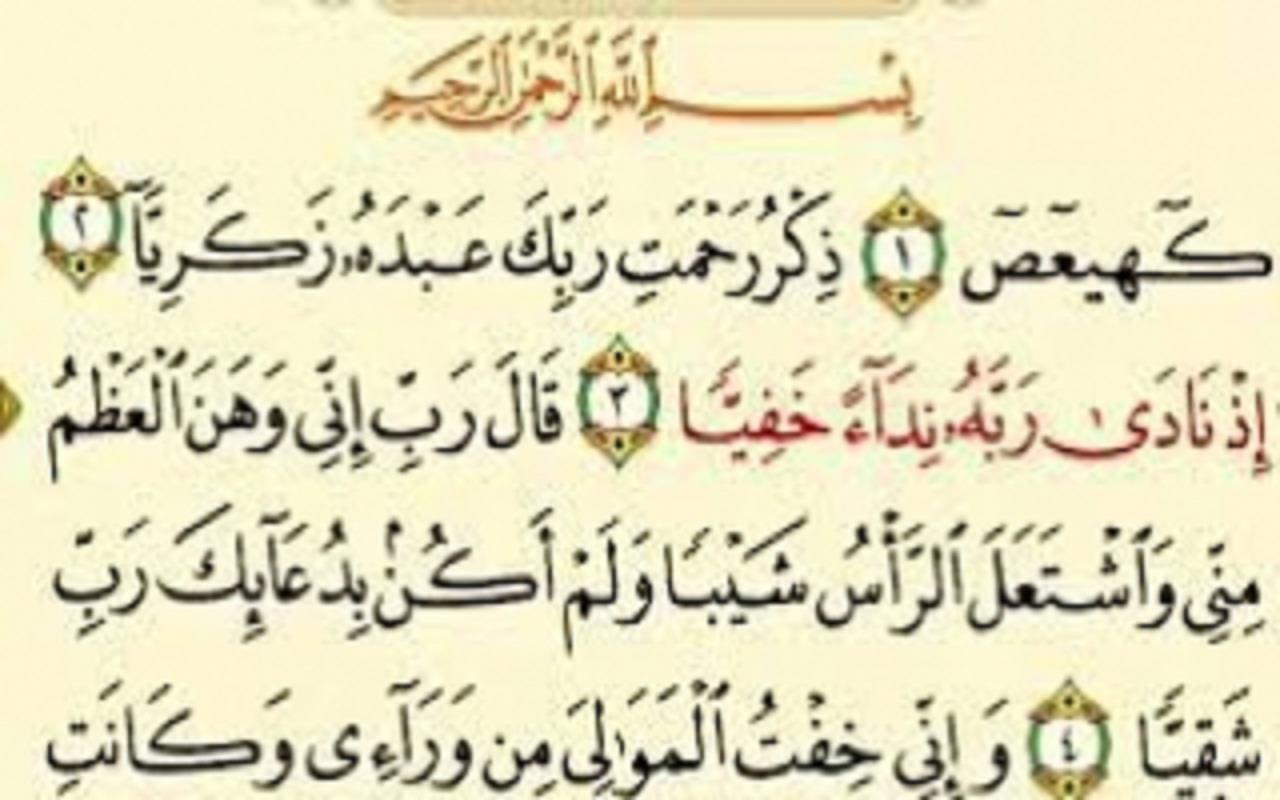 بِسْمِ ٱللَّهِ ٱلرَّحْمَٰنِ ٱلرَّحِيمِ
كٓهيعٓصٓ ١ ذِكْرُ رَحْمَتِ رَبِّكَ عَبْدَهُۥ زَكَرِيَّآ ٢
إِذْ نَادَىٰ رَبَّهُۥ نِدَآءً خَفِيًّا ٣ قَالَ رَبِّ إِنِّى وَهَنَ ٱلْعَظْمُ
مِنِّى وَٱشْتَعَلَ ٱلرَّأْسُ شَيْبًا وَلَمْ أَكُنۢ بِدُعَآئِكَ رَبِّ
شَقِيًّا ٤ وَإِنِّى خِفْتُ ٱلْمَوَٰلِىَ مِن وَرَآءِى وَكَانَتِ